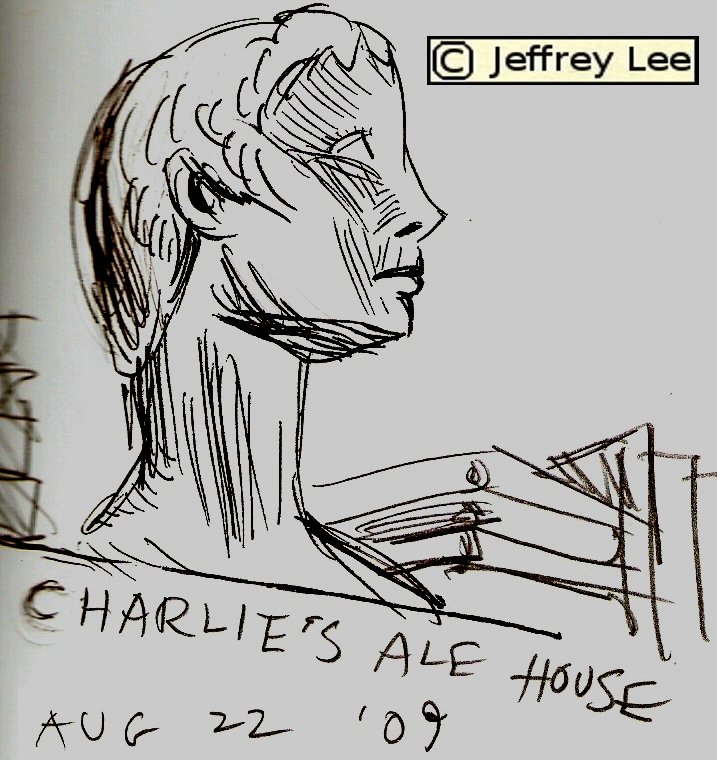 © Jeffrey Lee
CHARLIE'S ALE HOUSE
AUG 22 '09